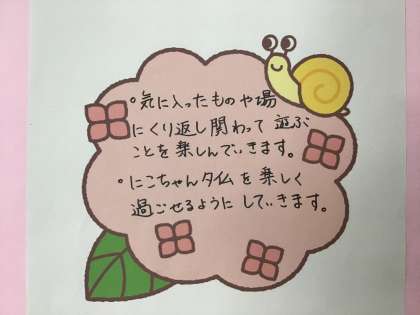 ・気に入ったものや場
にくり返し関わって並ぶ
ことを楽しんでいきます。
・にこちゃんタイムを楽しく
過ごせるようにしていきます。